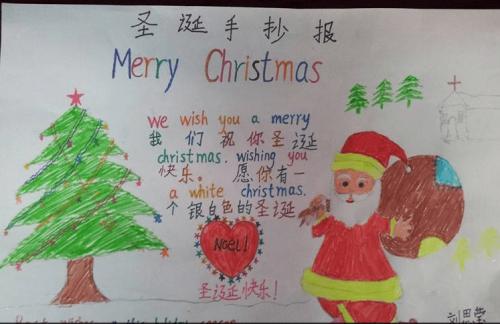 圣诞手抄报
Merry Christmas
we wish you a merry
我们祝你圣诞
christmas. wishing you
快乐。愿你有一
a white christmas.
个银白色的圣诞
Noel!
圣诞快乐！